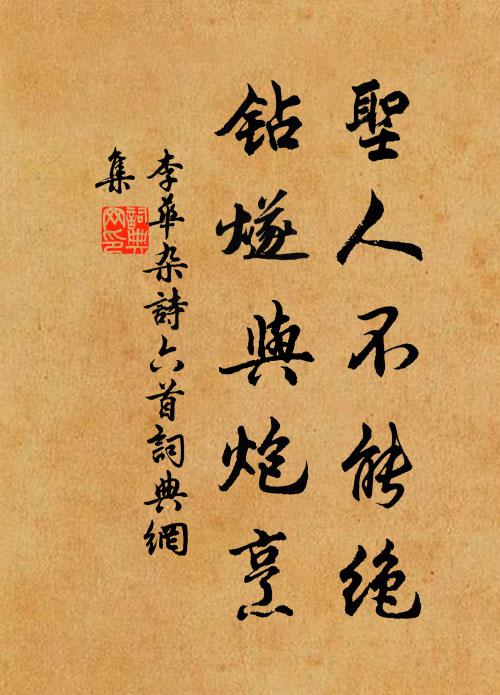 聖人不能絶
鉆燧與炮烹
李華杂詩六首詞典網
集
詞典
网印